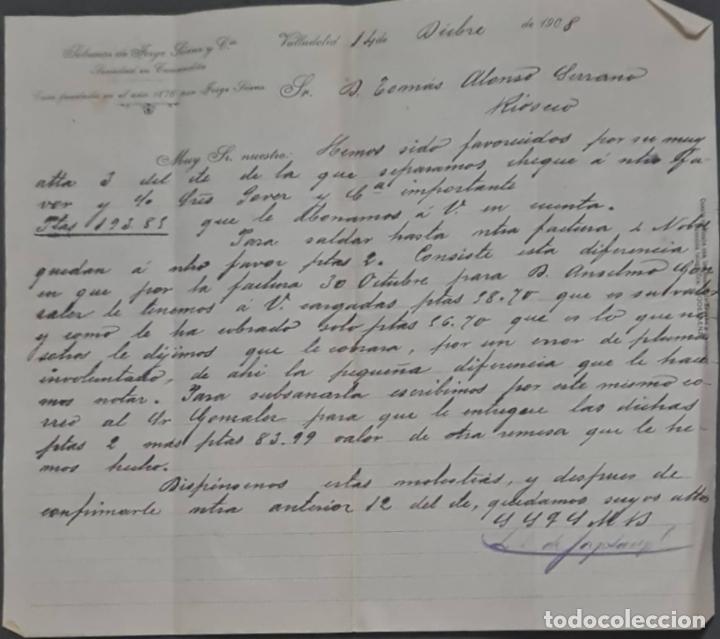 Sobrinos de Jorge Sáenz y Cía
Sociedad en Comandita
Casa fundada en el año 1876 por Jorge Sáenz
Valladolid 14 de Dicbre de 1908
Sr. D. Tomás Alonso Serrano
Rioseco
Muy Sr. nuestro: Hemos sido favorecidos por su muy
atta 3 del cte de la que separamos cheque á ntro fa-
vor y c/o Sres Jover y Cª importante
Ptas 193.85 que le abonamos á V. en cuenta.
Para saldar hasta ntra factura de Nobre
quedan á ntro favor ptas 2. Consiste esta diferencia
en que por la factura 30 Octubre para D. Anselmo Gon
zalez le tenemos á V. cargadas ptas 58.70 que es su valor
y como le ha cobrado solo ptas 56.70 que es lo que no-
sotros le dijimos que le cobrara, por un error de pluma
involuntario, de ahi la pequeña diferencia que le hace-
mos notar. Para subsanarla escribimos por este mismo co-
rreo al Sr Gonzalez para que le entregue las dichas
ptas 2 mas ptas 83.99 valor de otra remesa que le he-
mos hecho.
Dispénsenos estas molestias, y despues de
confirmarle ntra anterior 12 del cte, quedamos suyos attos
todocoleccion
todocoleccion.net